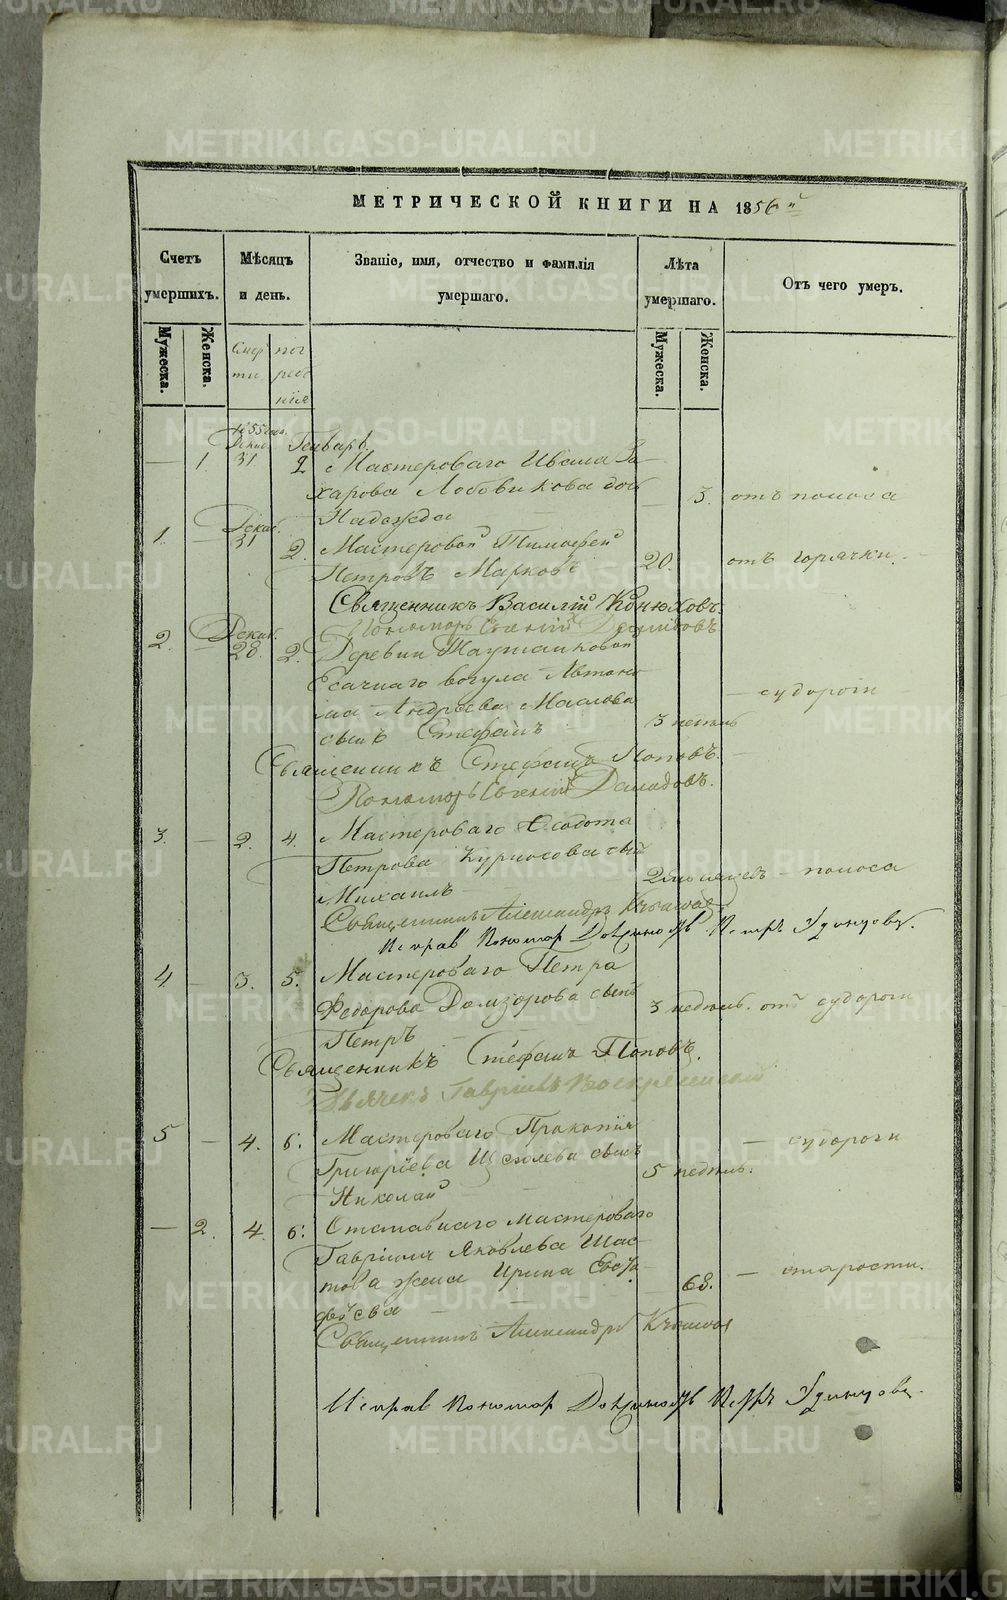 МЕТРИЧЕСКОЙ КНИГИ НА 1856 й
Счетъ умершихъ.
Мѣсяцъ и день.
Званіе, имя, отчество и фамилія умершаго.
Лѣта умершаго.
Отъ чего умеръ.
Мужеска.
Женска.
Смер
ти
пог
ребе
нія
Мужеска.
Женска.
1855 года
Декаб. Генварь.
— 1. 31 2 Мастероваго Ивана За
харова Лобовикова дочь 3. отъ поноса
Надежда
Декаб.
1. — 31 2. Мастеровой Тимофей
Петровъ Марковъ 20. отъ горячки.
Священникъ Василій Конюховъ
Пономарь Евгеній Демидовъ
Декаб.
2. — 28. 2. Деревни
Ясачнаго вогула Автоно
ма Андреева сынъ Стефанъ 3 недѣль — судороги
Священникъ Стефанъ Поповъ.
Пономарь Евгеній Демидовъ.
3. — 2. 4. Мастероваго Ѳедота
Петрова Курносова сынъ
Михаилъ 2 мѣсяцевъ — поноса
Священникъ Александръ
Исправ Пономар Петръ Удинцовъ.
4 — 3. 5. Мастероваго Петра
Федорова сынъ 3 недѣль. отъ судороги
Петръ
Священникъ Стефанъ Поповъ.
Дьячекъ Гавріилъ Воскресенскій
5 — 4. 6. Мастероваго Прокопія
Григорьева Щеголева сынъ 5 недѣль. — судороги
Николай
— 2. 4. 6. Отставнаго мастероваго
Гавріила Яковлева Шас
това жена Ирина 68. — старости.
Священникъ Александръ
Исправ Пономар Петръ Удинцовъ.
METRIKI.GASO-URAL.RU